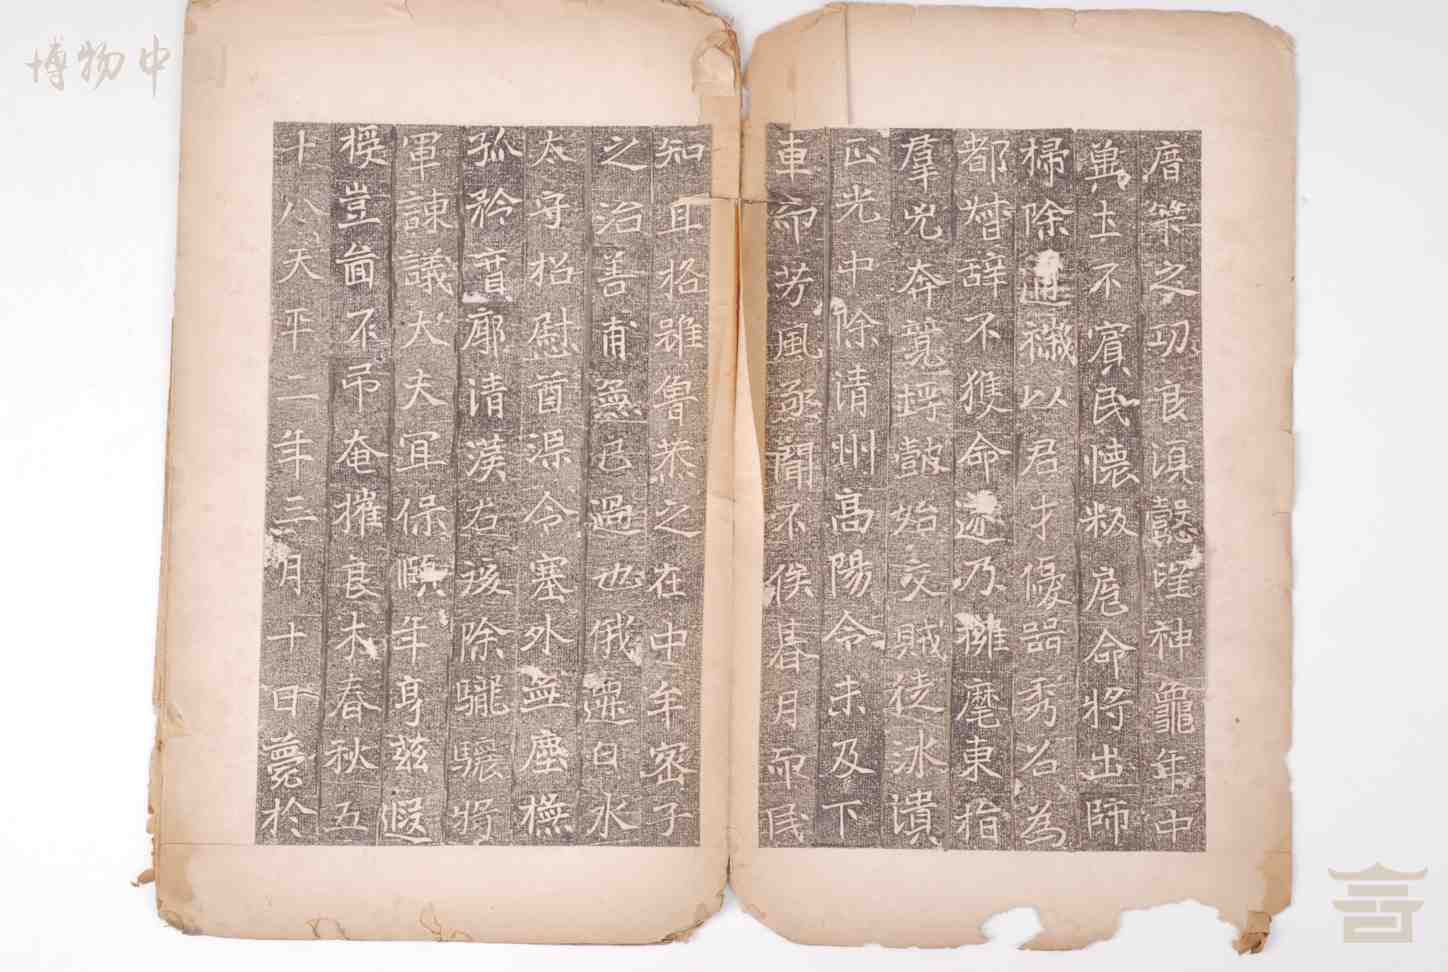 博物中国
厝築之功良須懿望神龜年中
單士不賓民懷叛扈命將出師
掃除逋穢以君才優器秀召為
都督辭不獲命遂乃擁麾東指
羣兇奔競桴鼓始交賊徒冰潰
正光中除清州高陽令未及下
車而芳風逐聞不俟暮月而民
知且格雖魯恭之在中牟密子
之治善甫無已過也俄遷白水
太守招慰酋渠令塞外無塵撫
孤矜窘廓清漢右後除驪驤將
軍諫議大夫宜保頤年身茲假
模豈啚不弔奄摧良木春秋五
十八天平二年三月十日薨於